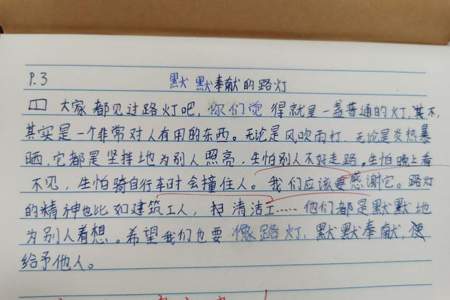 P.3 默默奉献的路灯
大家都见过路灯吧,你们觉得就是一盏普通的灯,其不,
其实是一个非常对人有用的东西。无论是风吹雨打,无论是炎热暴
晒,它都是坚持地为别人照亮,生怕别人不好走路,生怕晚上看
不见,生怕骑自行车时会撞住人。我们应该要感谢它。路灯
的精神也比如建筑工人,和清洁工……他们都是默默地
为别人着想。希望我们也要像路灯,默默奉献,
给予他人。